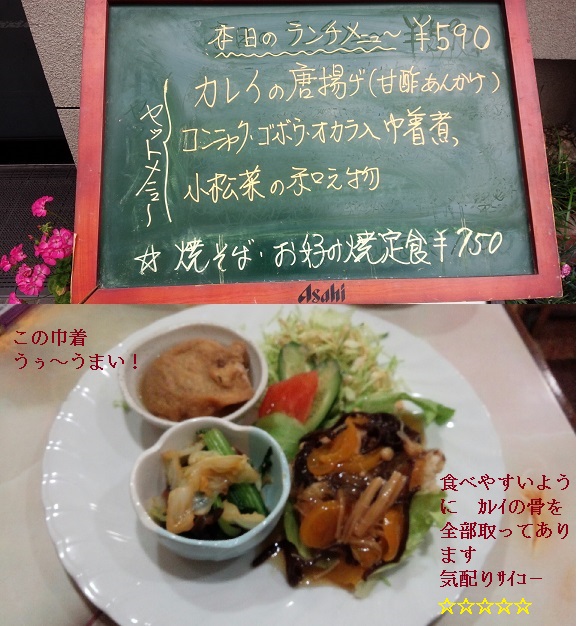 本日のランチメニュ～ ¥590
カレイの唐揚げ(甘酢あんかけ)
コンニャク・ゴボウ・オカラ入巾着煮、
小松菜の和え物
セットメニュ～
☆ 焼そば・お好み焼定食¥750
Asahi
この巾着
うぅ～うまい！
食べやすいよう
に ｶﾚｲの骨を
全部取ってあり
ます
気配りｻｲｺｰ
☆☆☆☆☆